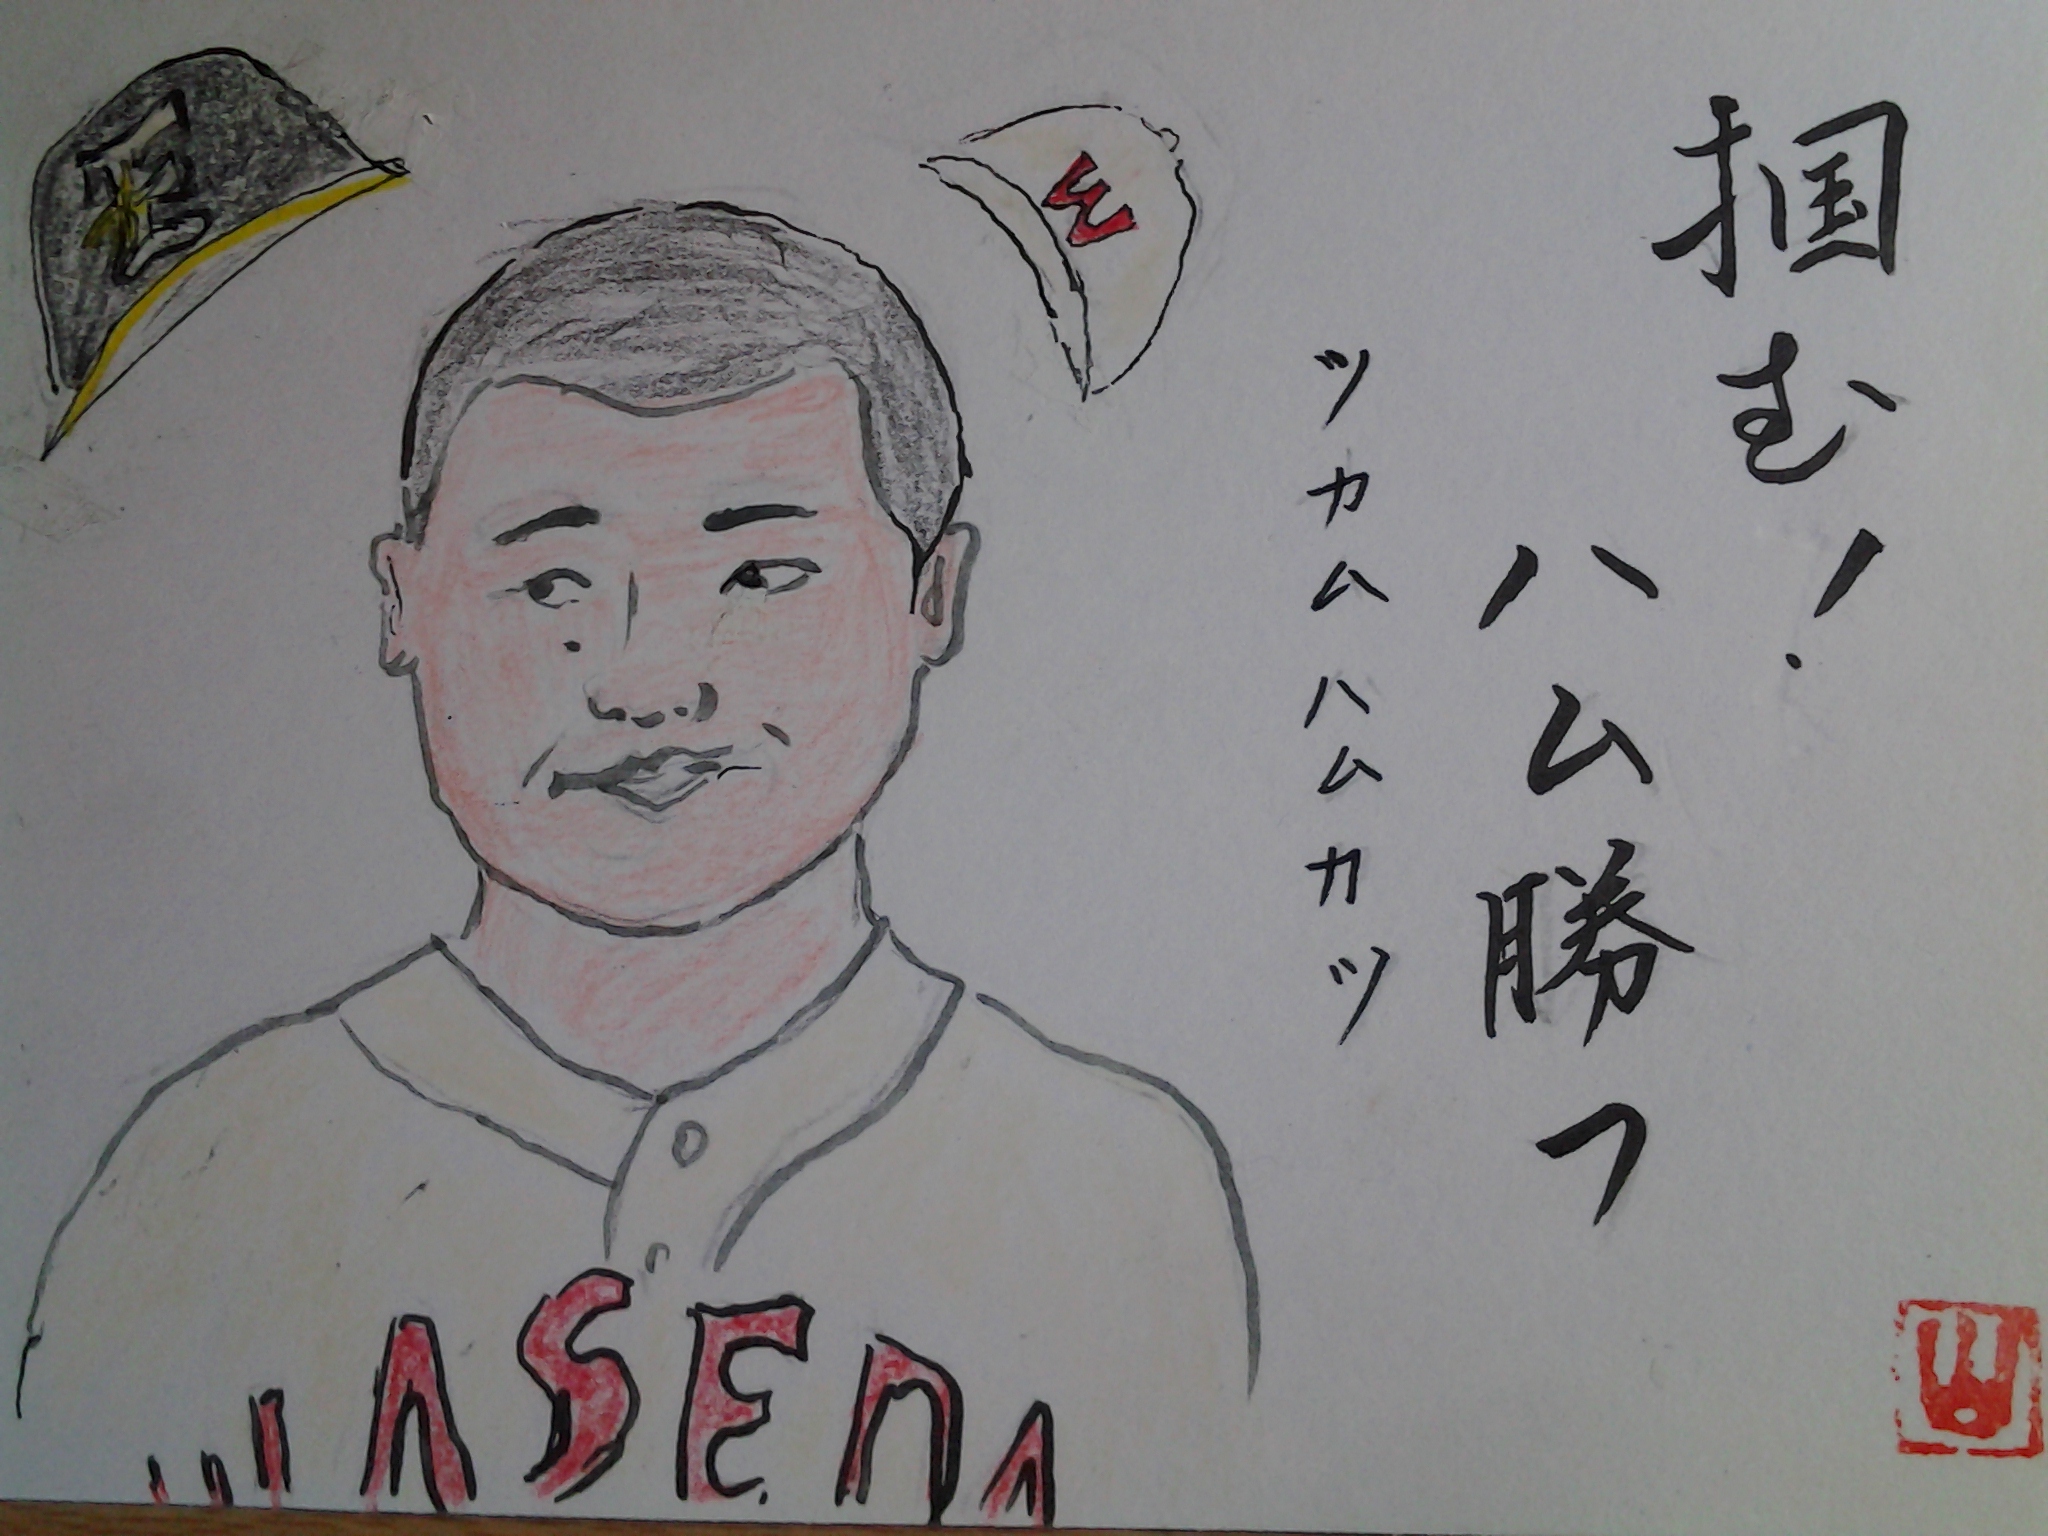 掴む!
ハム勝つ
ツカムハムカツ
WASEDA
W